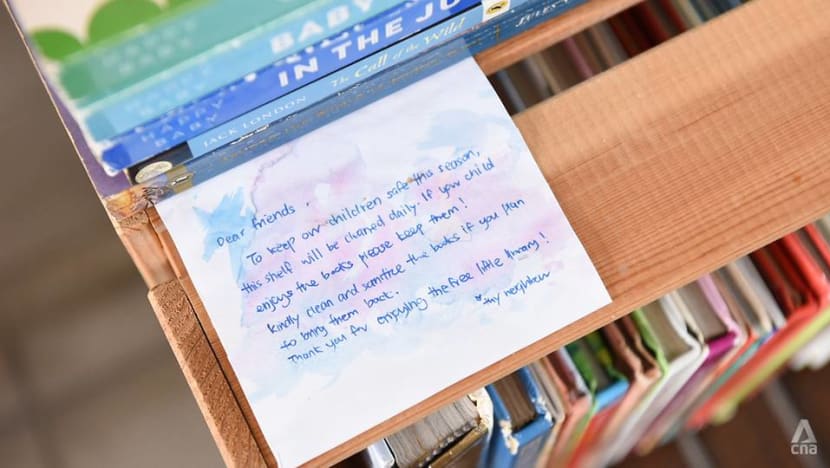 HAPPY BABY
BABY
IN THE JU
HAPPY
BABY
JACK LONDON The Call of the Wild
JULES
Dear friends,
To keep our children safe this season,
this shelf will be cleaned daily. If your child
enjoys the books please keep them!
Kindly clean and sanitise the books if you plan
to bring them back.
Thank you for enjoying the free little library!
thy neighbour
cna